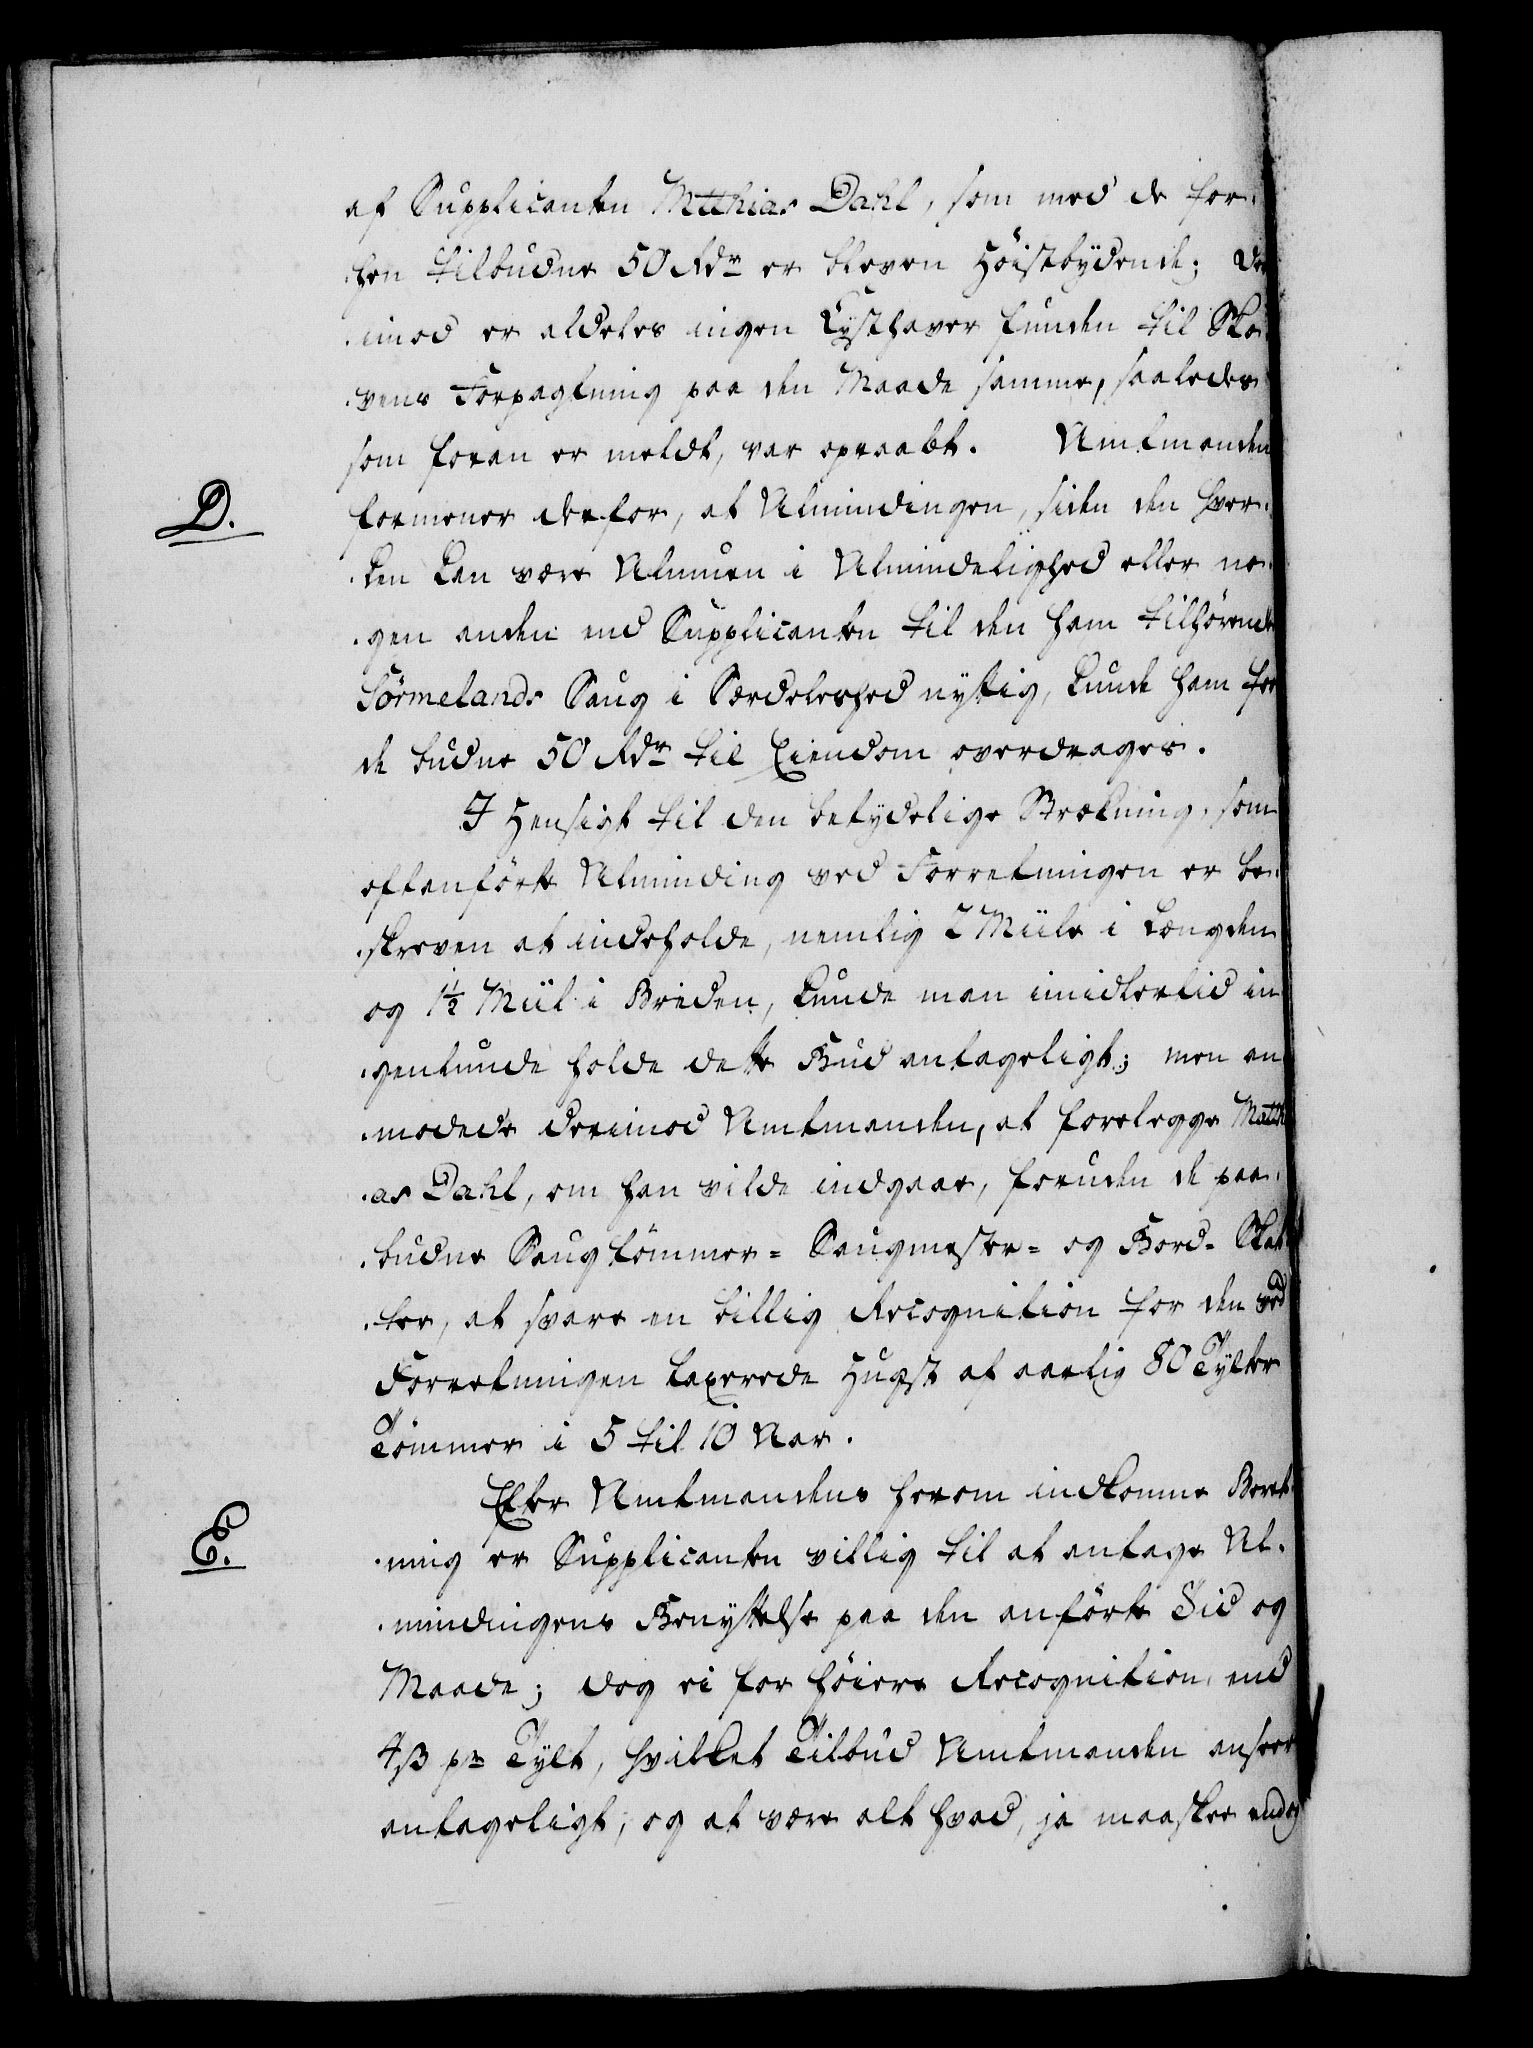 af Supplicanten Mtthias Dahl, som med de for-
hen tilbudne 50 Rdr er bleven Höistbydende; der
-imod er aldeles ingen Lysthaver funden til Sko-
-vens Forpagtning paa den Maade samme, saaledes
som foran er meldt, var opraabt. Amtmanden
D.
formener derfor, at Almindingen, siden den hver-
-ken kan være Almuen i Almindelighed eller no-
-gen anden end Supplicanten til den ham tilhørende
Sörmelands Saug i Særdeleshed nyttig, kunde ham for
de budne 50 Rdr til Eiendom overdrages.
I Hensigt til den betydelige Strækning, som
oftanförte Alminding ved Forretningen er be-
-skreven at indeholde, nemlig 2 Miile i Længden
og 1½ Miil i Breden, kunde man imidlertid in
-genlunde holde dette Bud antageligt; men an
-modede derimod Amtmanden, at forelegge Matthi
-as Dahl, om han vilde indgaae, foruden de paa-
-budne Saugtömmer- Saugmester- og Bord- Skat
-ter, at svare en billig Recognition for den ved
Forretningen taxerede Hugst af aarlig 80 Tylter
Tömmer i 5 til 10 Aar.
Efter Amtmandens herom indkomne Beret-
E.
-ning er Supplicanten villig til at antage Al-
-mindingens Benyttelse paa den anförte Tid og
Maade; dog ei for höiere Recognition, end
4 ß pr Tylt, hvilket Tilbud Amtmanden anseer
antageligt, og at være alt hvad, ja maaskee endog